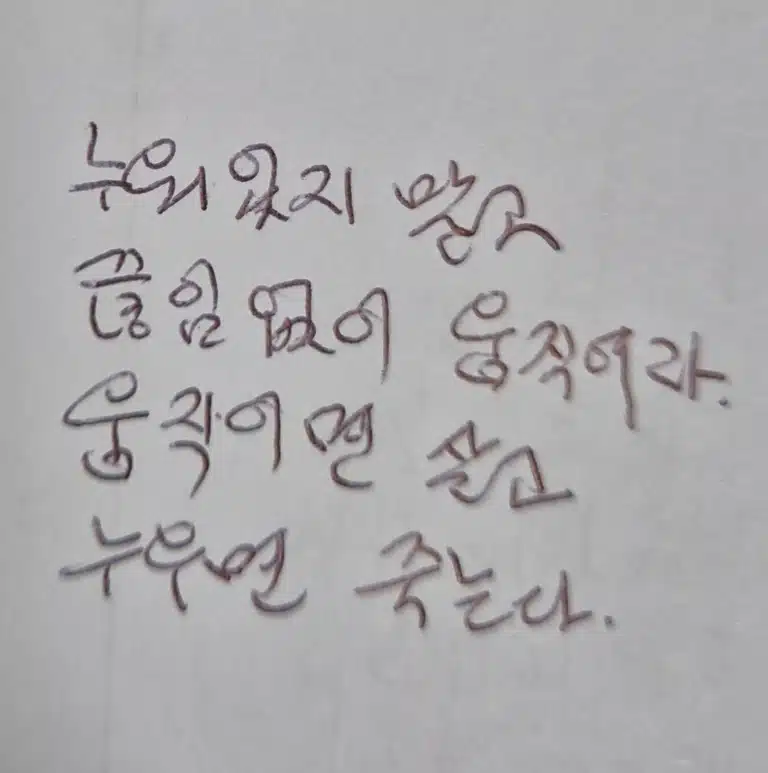 누워 있지 말고
끊임 없이 움직여라.
움직이면 살고
누우면 죽는다.